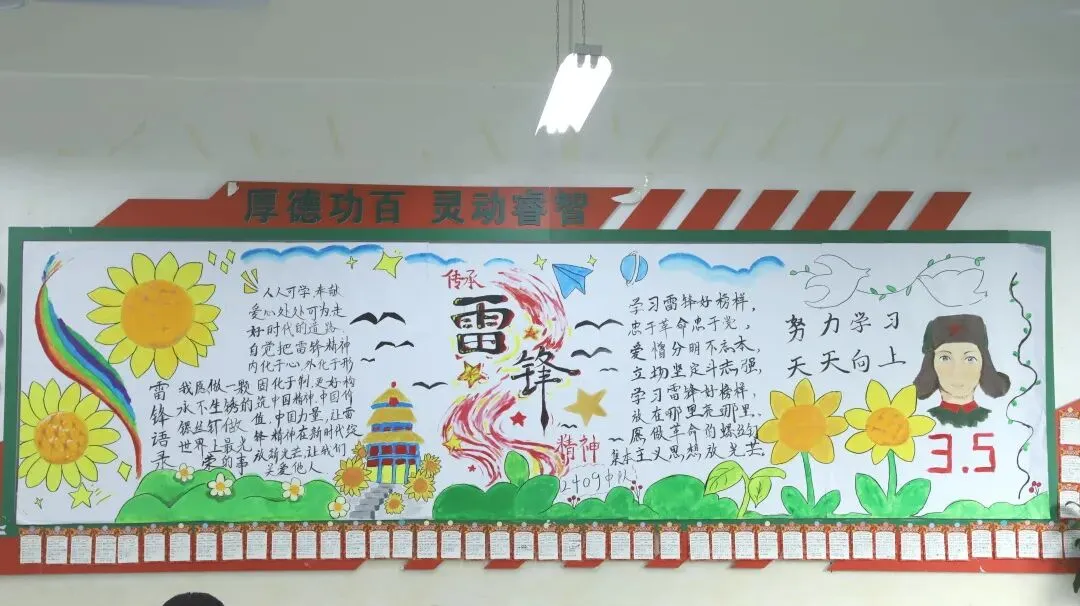 厚德功百 灵动睿智
人人可学,奉献
爱心处处可为,走
好时代的道路.
自觉把雷锋精神
内化于心,外化于形
固化于制,更好构
筑中国精神,中国价
值,中国力量,让雷
锋精神在新时代绽
放新光芒,让我们
关爱他人
雷锋语录
我愿做一颗
永不生锈的
螺丝钉做
世界上最光
荣的事
传承
雷锋
精神
2409中队
学习雷锋好榜样,
忠于革命忠于党,
爱憎分明不忘本,
立场坚定斗志强,
学习雷锋好榜样,
放在哪里亮哪里.
愿做革命的螺丝钉
集本主义思想放光芒.
努力学习
天天向上
3.5